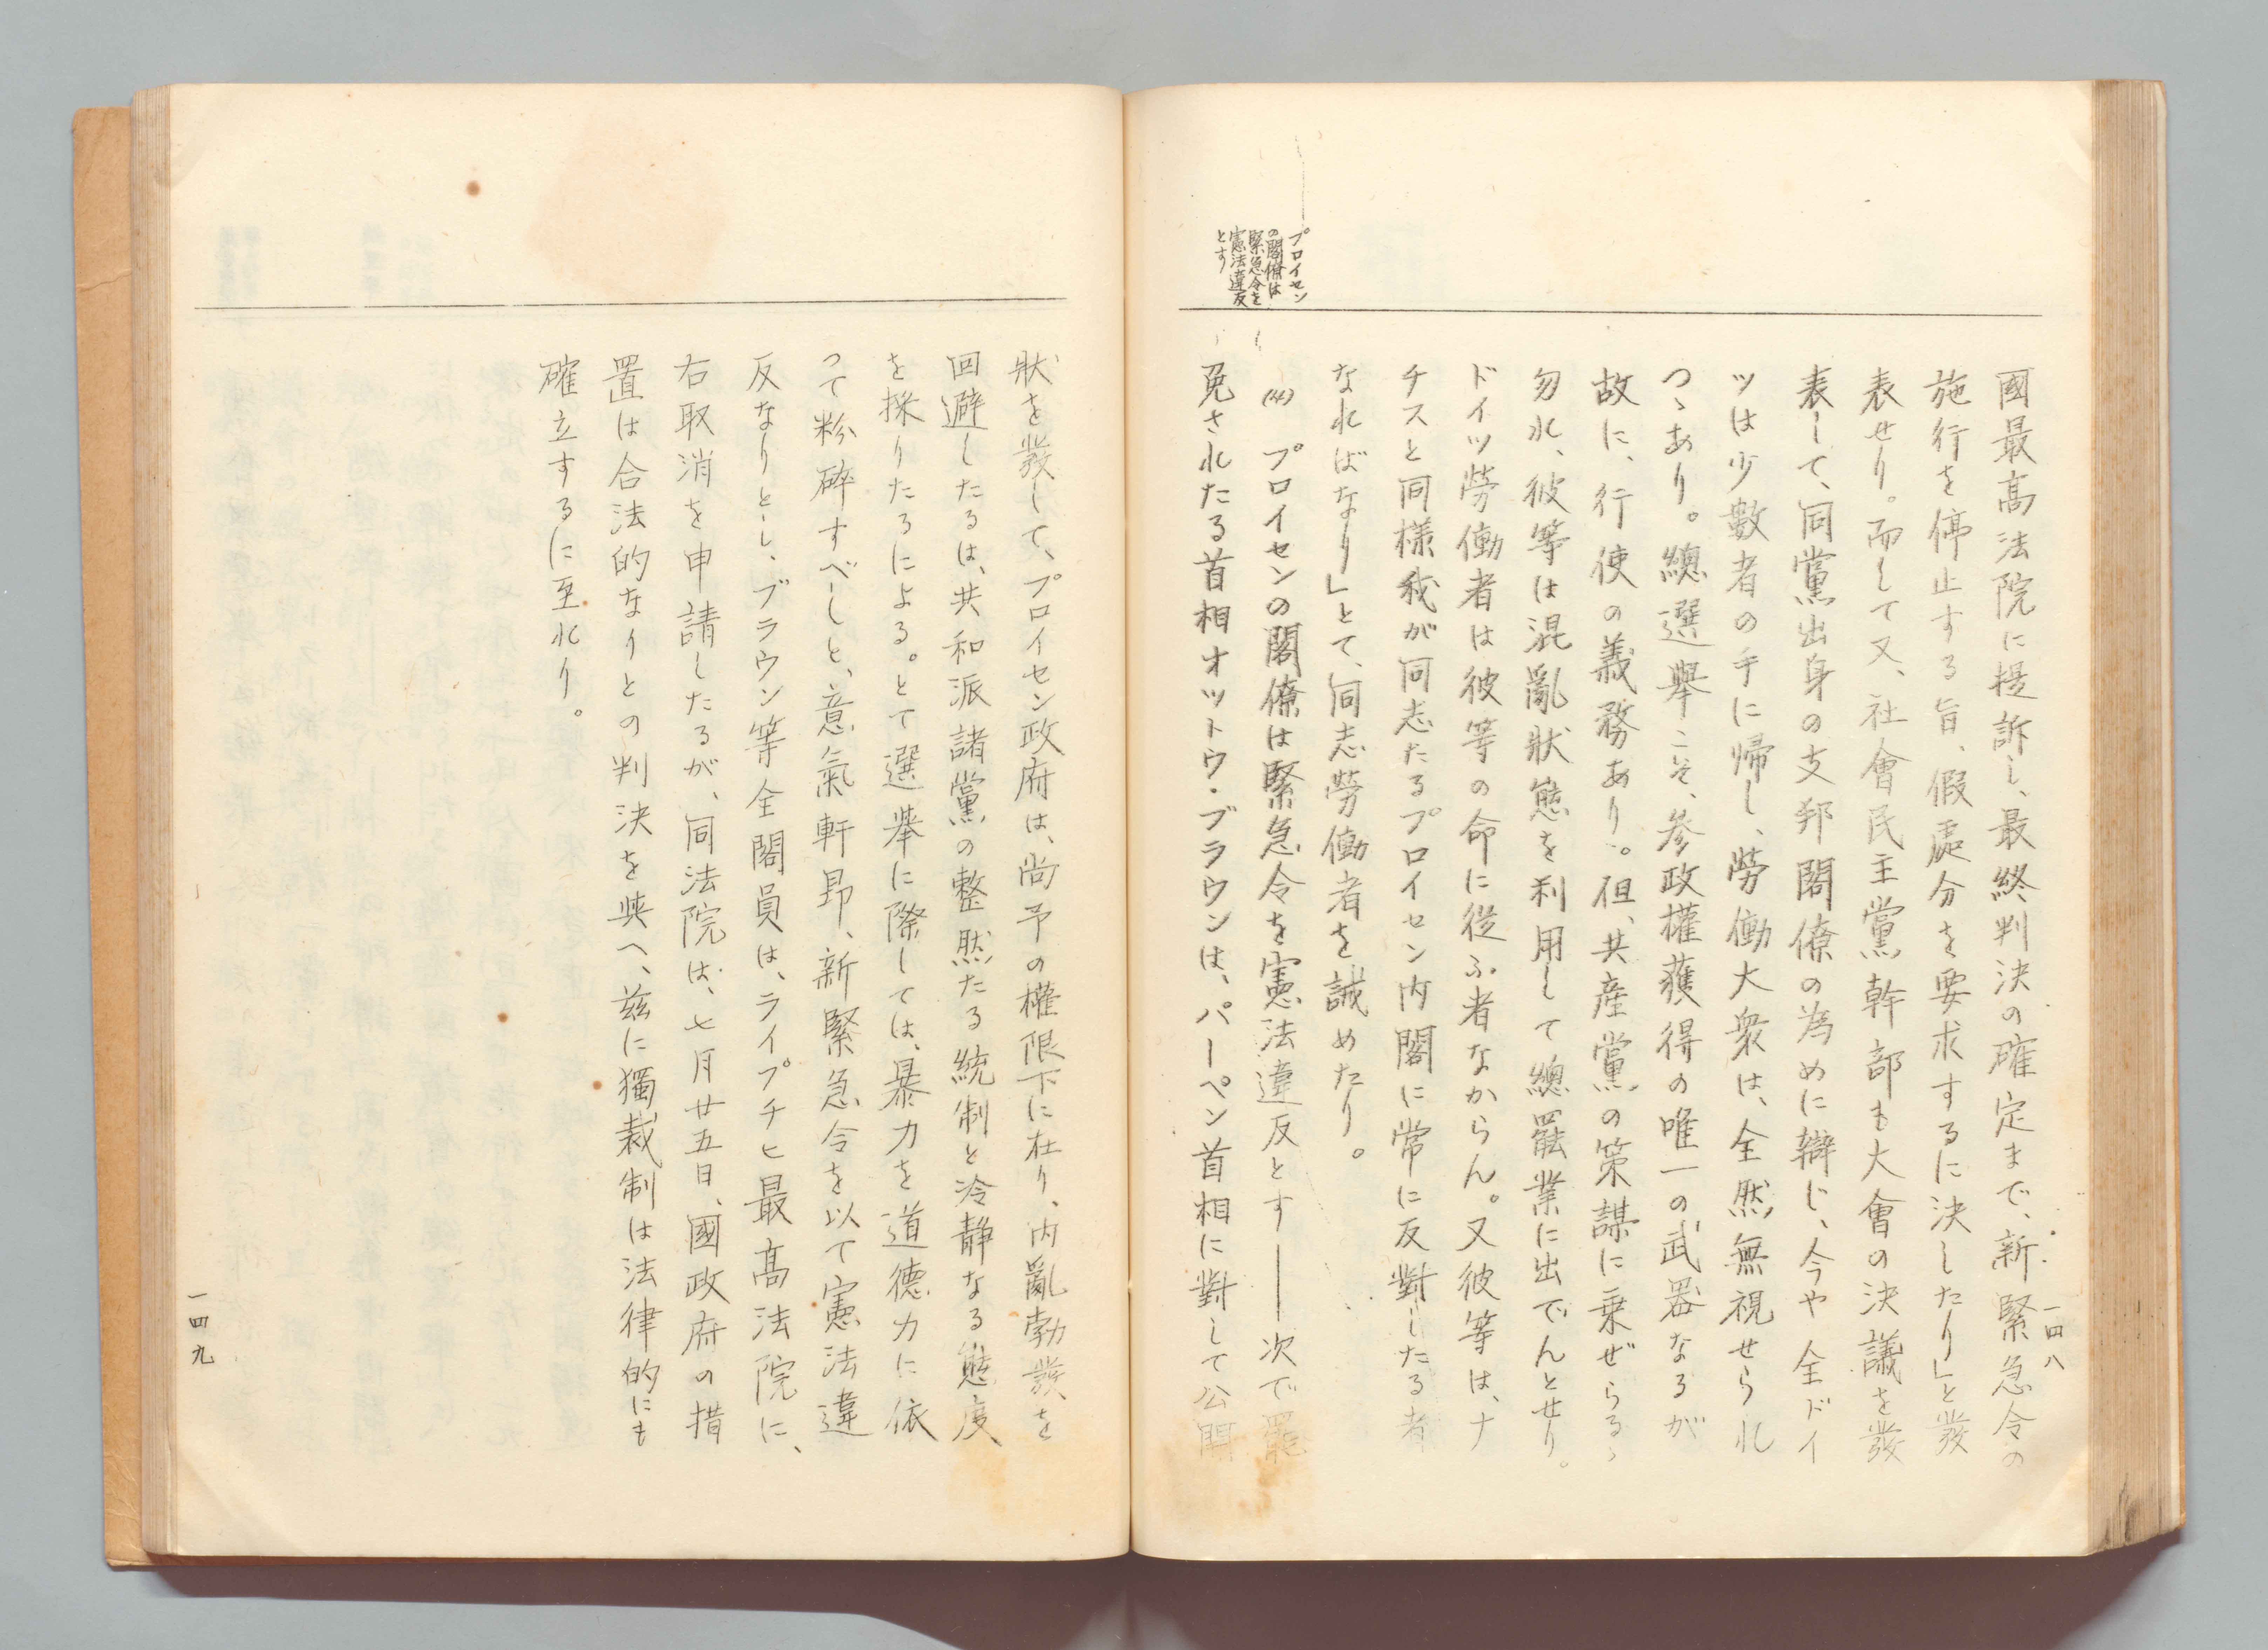 一四八
國最高法院に提訴し、最終判決の確定まで、新緊急令の
施行を停止する旨、假處分を要求するに決したり」と發
表せり。而して又、社會民主黨幹部も大會の決議を發
表して、同黨出身の支邦閣僚の為めに辯じ、今や全ドイ
ツは少數者の手に帰し、勞働大衆は、全然無視せられ
つゝあり。總選擧こそ、参政權獲得の唯一の武器なるが
故に、行使の義務あり。但、共産黨の策謀に乗ぜらるゝ
勿れ、彼等は混亂狀態を利用して總罷業に出でんとせり。
ドイツ勞働者は彼等の命に從ふ者なからん。又彼等は、ナ
チスと同様我が同志たるプロイセン内閣に常に反對したる者
なればなり」とて、同志勞働者を誡めたり。
プロイセン
の閣僚は
緊急令を
憲法違反
とす
(4) プロイセンの閣僚は緊急令を憲法違反とす──次で罷
免されたる首相オットウ・ブラウンは、パーペン首相に對して公開
狀を發して、プロイセン政府は、尚予の權限下に在り、内亂勃發を
回避したるは、共和派諸黨の整然たる統制と冷静なる態度
を採りたるによる。とて選擧に際しては、暴力を道德力に依
つて粉碎すべしと、意氣軒昻、新緊急令を以て憲法違
反なりとし、ブラウン等全閣員は、ライプチヒ最高法院に、
右取消を申請したるが、同法院は、七月廿五日、國政府の措
置は合法的なりとの判決を與へ、兹に獨裁制は法律的にも
確立するに至れり。
一四九